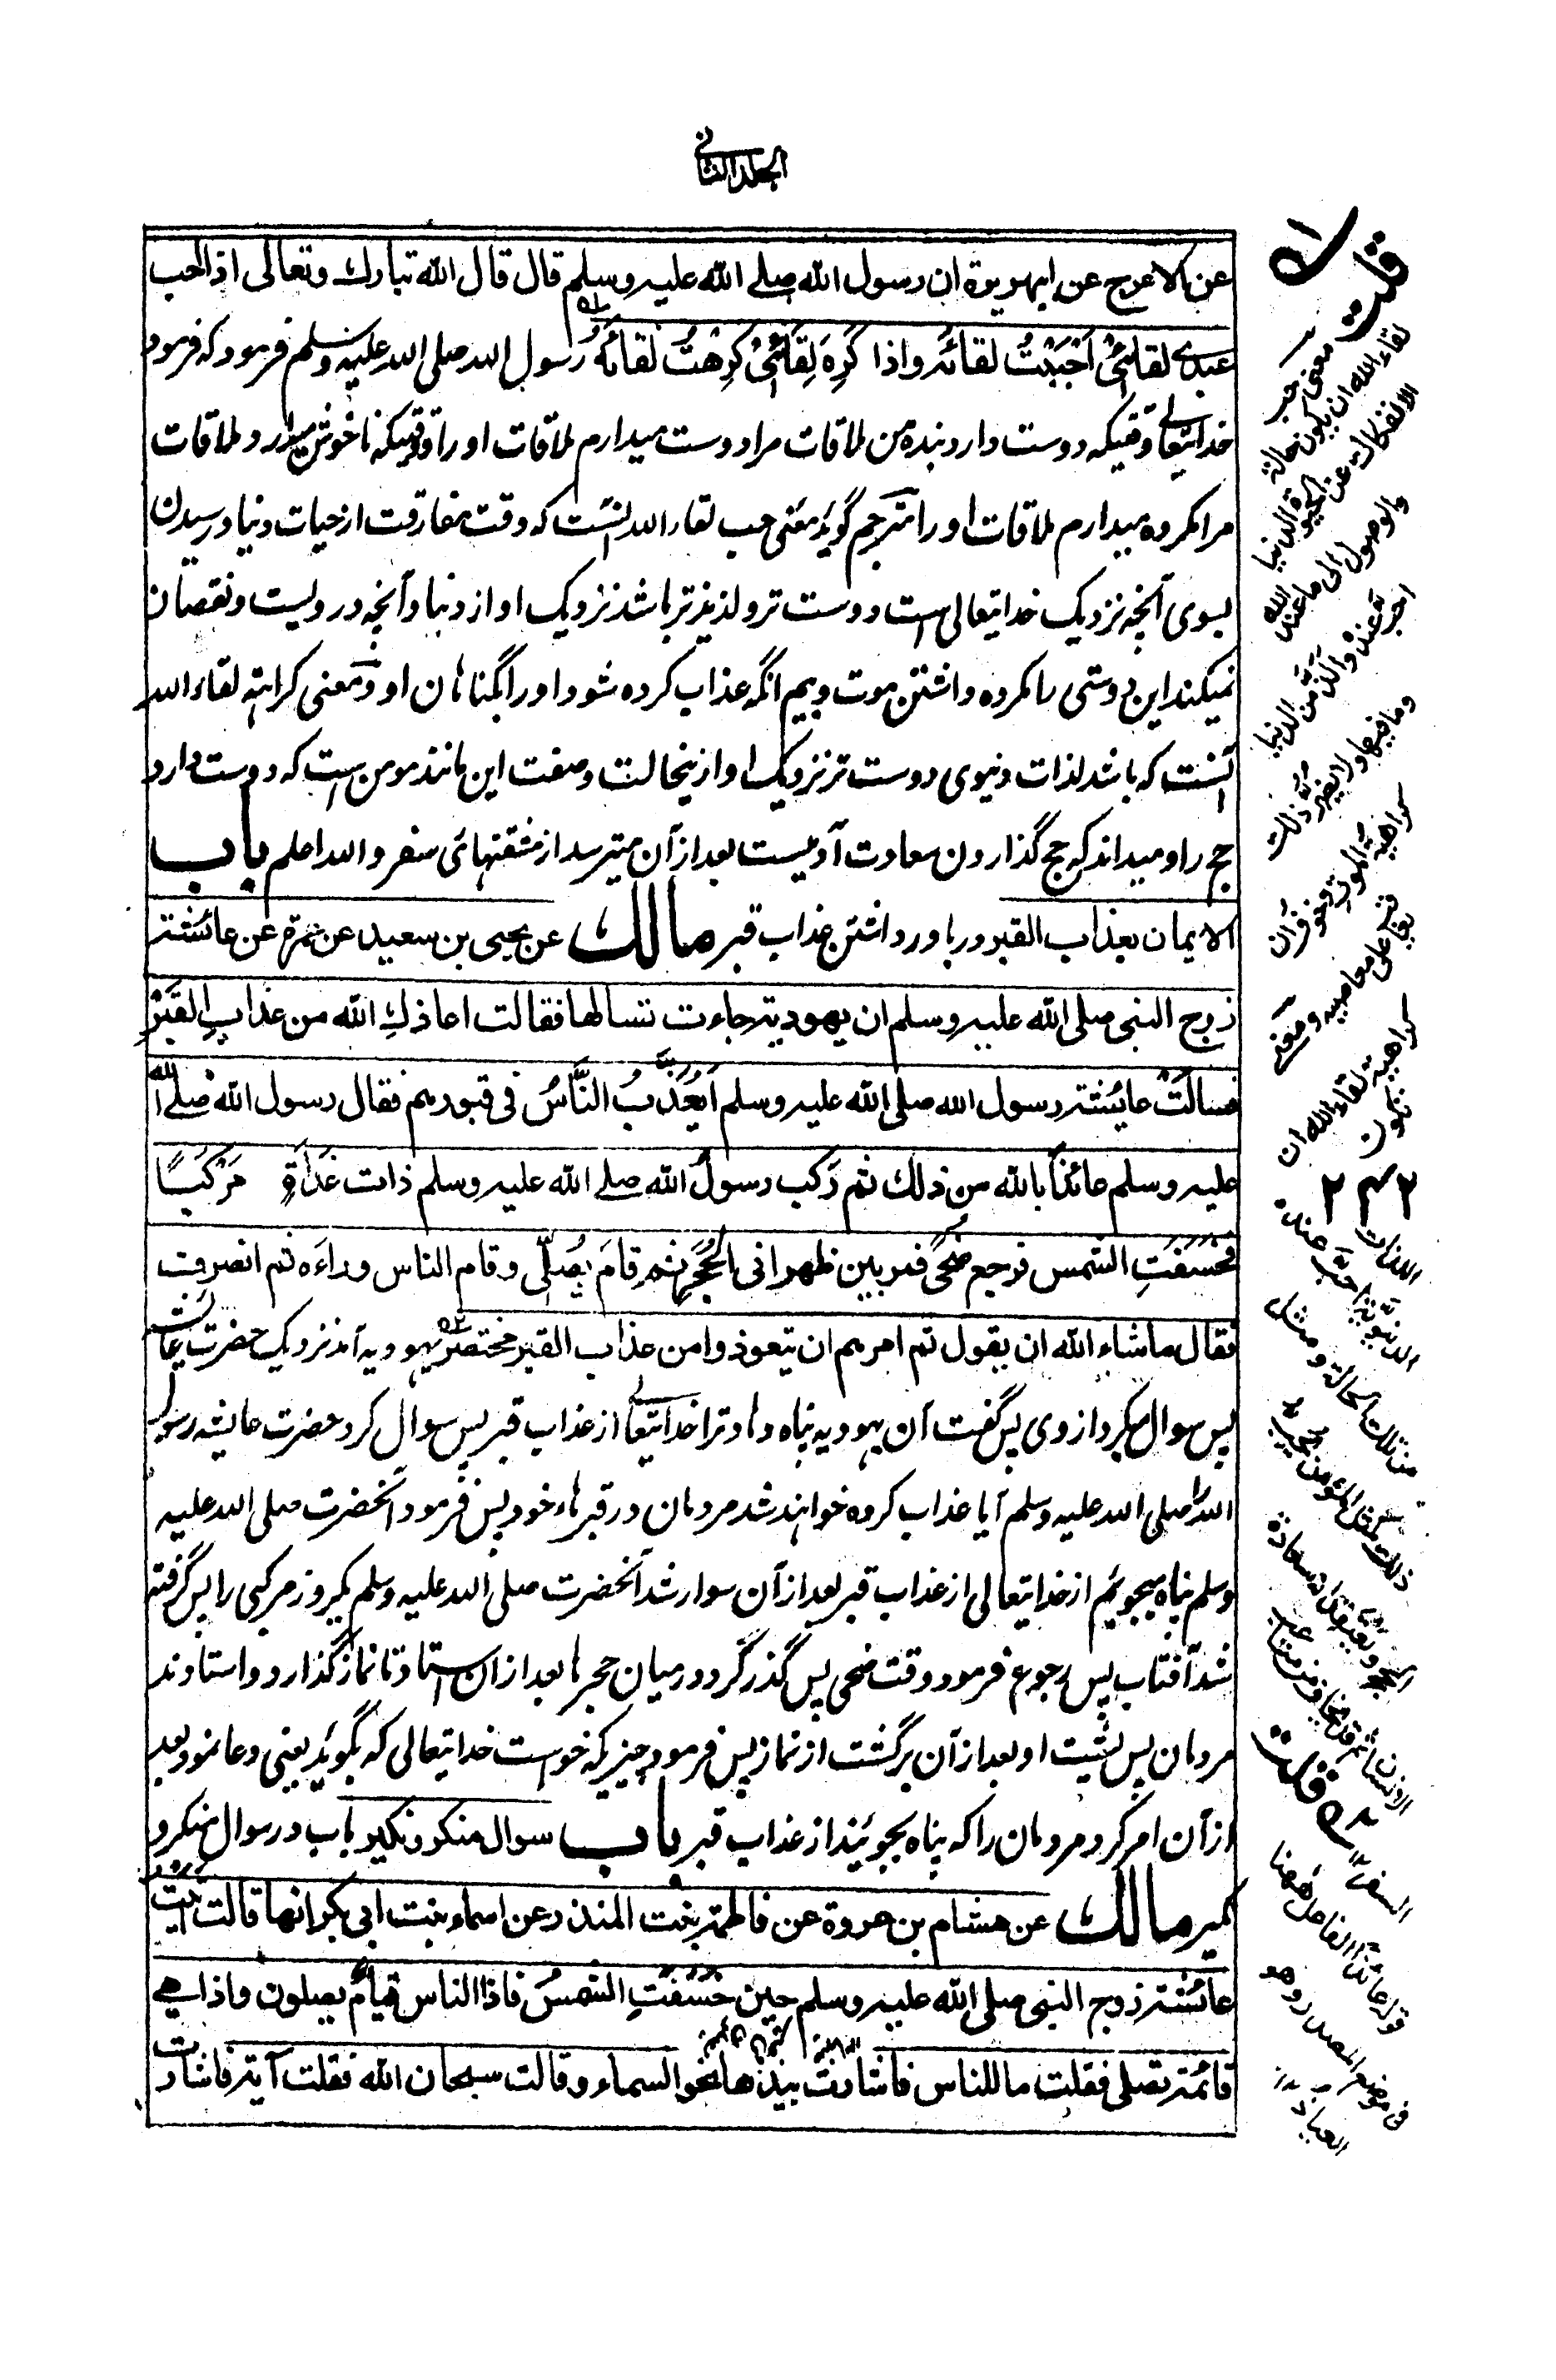 الجلد الثانی
عن الاعرج عن ابی هریرة ان رسول الله صلے الله علیه وسلم قال قال الله تبارك وتعالی اذا احب
عبدی لقائی اَحْبَبْتُ لقائه واذا كَرِهَ لِقَائی كَرِهْتُ لقائهُ رسول الله صلی الله علیه وسلم فرمود که فرمود
خدایتعالے وقتیکه دوست دارد بنده من ملاقات مرا دوست میدارم ملاقات او را و وقتیکه ناخوش میدارد ملاقات
مرا مکروه میدارم ملاقات او را مترجم گوید معنی حب لقاء الله انست که وقت مفارقت از حیات دنیا و رسیدن
بسوی آنچه نزدیک خدایتعالی است دوست تر و لذیذتر باشد نزدیک او از دنیا و آنچه در ویست و نقصان
نمیکند این دوستی را مکروه داشتن موت و بیم انکه عذاب کرده شود او را بگناهان او و معنی کراهته لقاء الله
آنست که باشد لذات دنیوی دوست تر نزدیک او ازینحالت وصفت این مانند مومن است که دوست دارد
حج را و میداند که حج گذاردن سعادت آدمیست بعد ازآن میترسد از مشقتهائی سفر والله اعلم باب
الایمان بعذاب القبر در باور داشتن عذاب قبر مالك عن یحیی بن سعید عن عمرة عن عائشة
زوج النبی صلی الله علیه وسلم ان یهودیة جاءت تسالها فقالت اعاذكِ الله من عذابِ القبرِ
فسالَتْ عائشة رسول الله صلی الله علیه وسلم اَیُعَذَّبُ النَّاسُ فی قبورهم فقال رسول الله صلے الله
علیه وسلم عائذاً بالله من ذلك ثم رَكب رسولُ الله صلے الله علیه وسلم ذات غَدَاةٍ مَرْكَبًا
فخَسَفَتِ الشمس فرجع ضُحًی فمر بین ظهرانی الحُجَرِ ثم قامَ یُصلّی وقام الناس وراءَه ثم انصرف
فقال ماشاء الله ان یقول ثم امرهم ان یتعوذوا من عذاب القبر مختصر یهودیه آمد نزدیک حضرت عایشه
پس سوال میکرد از وی پس گفت آن یهودیه پناه دهاد ترا خدایتعالے از عذاب قبر پس سوال کرد حضرت عایشه رسول
الله را صلی الله علیه وسلم آیا عذاب کرده خواهند شد مردمان در قبرهاء خود پس فرمود آنحضرت صلی الله علیه
وسلم پناه میجویم از خدایتعالی از عذاب قبر بعد ازآن سوار شد آنحضرت صلی الله علیه وسلم یکروز مرکبی را پس گرفته
شد آفتاب پس رجوع فرمود وقت ضحی پس گذر کرد در میان حجرها بعد ازان استاد تا نماز گذارد و استادند
مردمان پس پشت او بعد ازآن برگشت از نماز پس فرمود چیزیکه خواست خدایتعالی که بگوید یعنی دعا نمود بعد
ازآن امر کرد مردمان را که پناه بجویند از عذاب قبر باب سوال منكر ونكیر باب در سوال منکر و
نکیر مالك عن هشام بن عروة عن فاطمة بنت المنذر عن اسماء بنت ابی بكر انها قالت اتیت
عائشة زوج النبی صلی الله علیه وسلم حین خَسَفَتِ الشمسُ فاذا الناس قیامٌ یصلون واذا هے
قائمة تصلی فقلت ما للناس فاشارت بیدها نحو السماء وقالت سبحان الله فقلت آیة فاشارت
قلت معنی حب
لقاء الله ان یکون بحالة
الانفکاك عن الحیوة الدنیا
والوصول الی ما عند الله
احب عنده والذ من الدنیا
وما فیها ولا یضر ذلك
کراهیة الموت
علی معاصیه ومعنی
کراهیة لقاء الله ان
تکون
۲۴۲
اللذات
الدنیویة احب عنده
من تلك الحالة ومثل
ذلك مثل المؤمن یحب
الحج ویعتقد انه سعادة
قلت
قوله عائذا الفاعل ههنا
فی موضع المصدر وهو